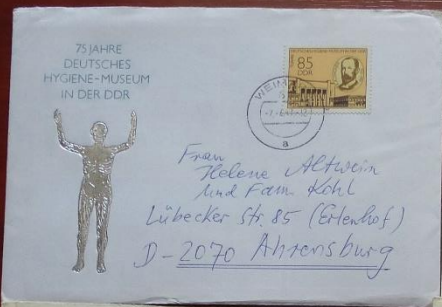 75 JAHRE
DEUTSCHES
HYGIENE-MUSEUM
IN DER DDR
85
DDR
a
Frau
Helene Altwein
und Fam. Kohl
Lübecker Str. 85 (Erlenhof)
D-2070 Ahrensburg